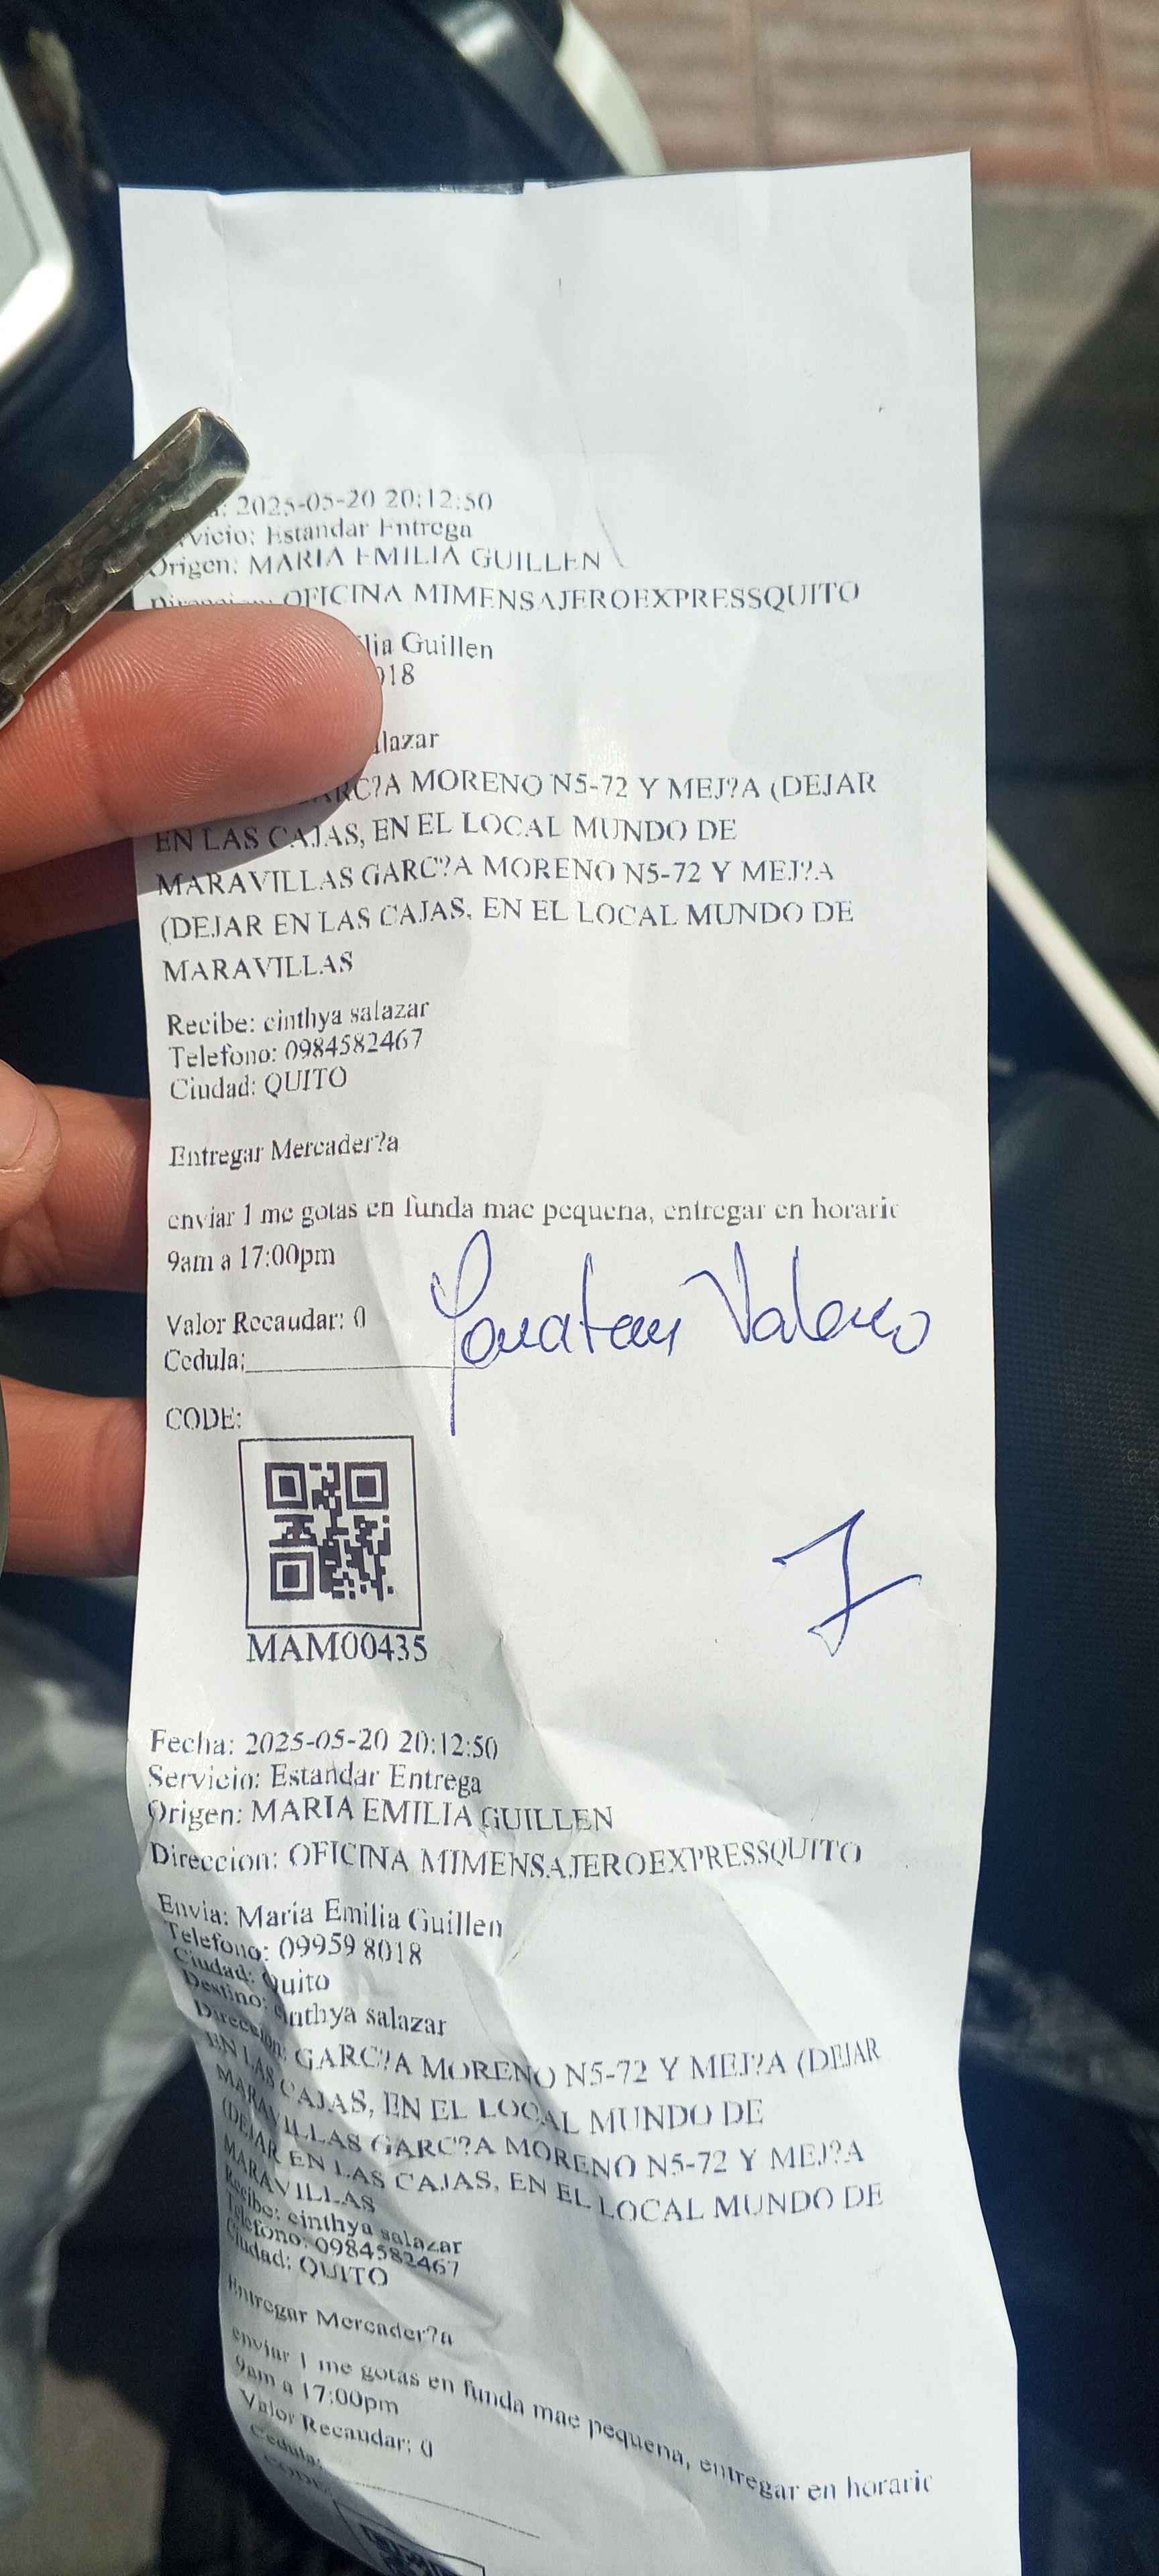 : 2025-05-20 20:12:50
vicio: Estandar Entrega
Origen: MARIA EMILIA GUILLEN
OFICINA MIMENSAJEROEXPRESSQUITO
lia Guillen
018
lazar
ARC?A MORENO N5-72 Y MEJ?A (DEJAR
EN LAS CAJAS, EN EL LOCAL MUNDO DE
MARAVILLAS GARC?A MORENO N5-72 Y MEJ?A
(DEJAR EN LAS CAJAS, EN EL LOCAL MUNDO DE
MARAVILLAS
Recibe: cinthya salazar
Telefono: 0984582467
Ciudad: QUITO
Entregar Mercader?a
enviar 1 me gotas en funda mae pequena, entregar en horaric
9am a 17:00pm
Valor Recaudar: 0
Cedula:
CODE:
MAM00435
Fecha: 2025-05-20 20:12:50
Servicio: Estandar Entrega
Origen: MARIA EMILIA GUILLEN
Direccion: OFICINA MIMENSAJEROEXPRESSQUITO
Envia: Maria Emilia Guillen
Telefono: 09959 8018
Ciudad: Quito
Destino: cinthya salazar
Direccion: GARC?A MORENO N5-72 Y MEJ?A (DEJAR
EN LAS CAJAS, EN EL LOCAL MUNDO DE
MARAVILLAS GARC?A MORENO N5-72 Y MEJ?A
(DEJAR EN LAS CAJAS, EN EL LOCAL MUNDO DE
MARAVILLAS
Recibe: cinthya salazar
Telefono: 0984582467
Ciudad: QUITO
Entregar Mercader?a
enviar 1 me gotas en funda mae pequena, entregar en horaric
9am a 17:00pm
Valor Recaudar: 0
Cedula:
CODE: